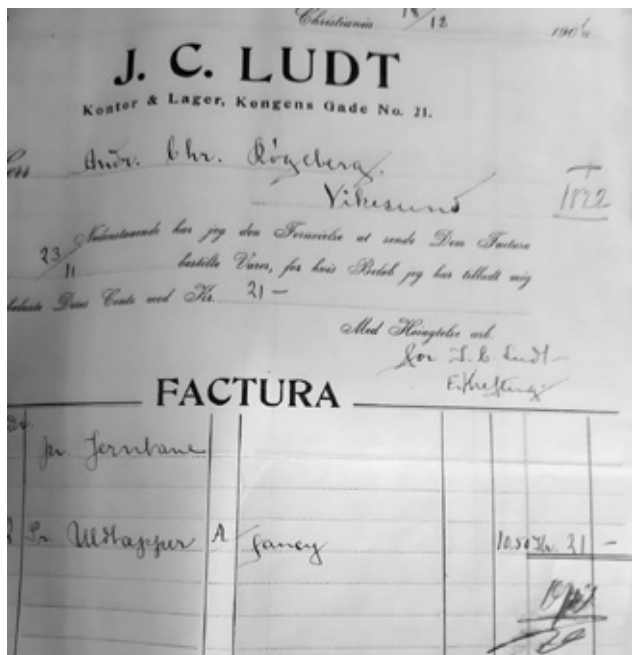 Christiania 18/12 190
J. C. LUDT
Kontor & Lager, Kongens Gade No. 21.
Andr. Chr. Røgeberg.
Vikesund
1822
Nedenstaaende har jeg den Fornøielse at sende Dem Factura
23/11 bestilte Varer, for hvis Beløb jeg har tilladt mig
belaste Deres Conto med Kr. 21 —
Med Høiagtelse erb.
for J. C. Ludt
FACTURA
pr. Jernbane
2 Pr. Uldtæpper A fancy 10.50 Kr. 21 —